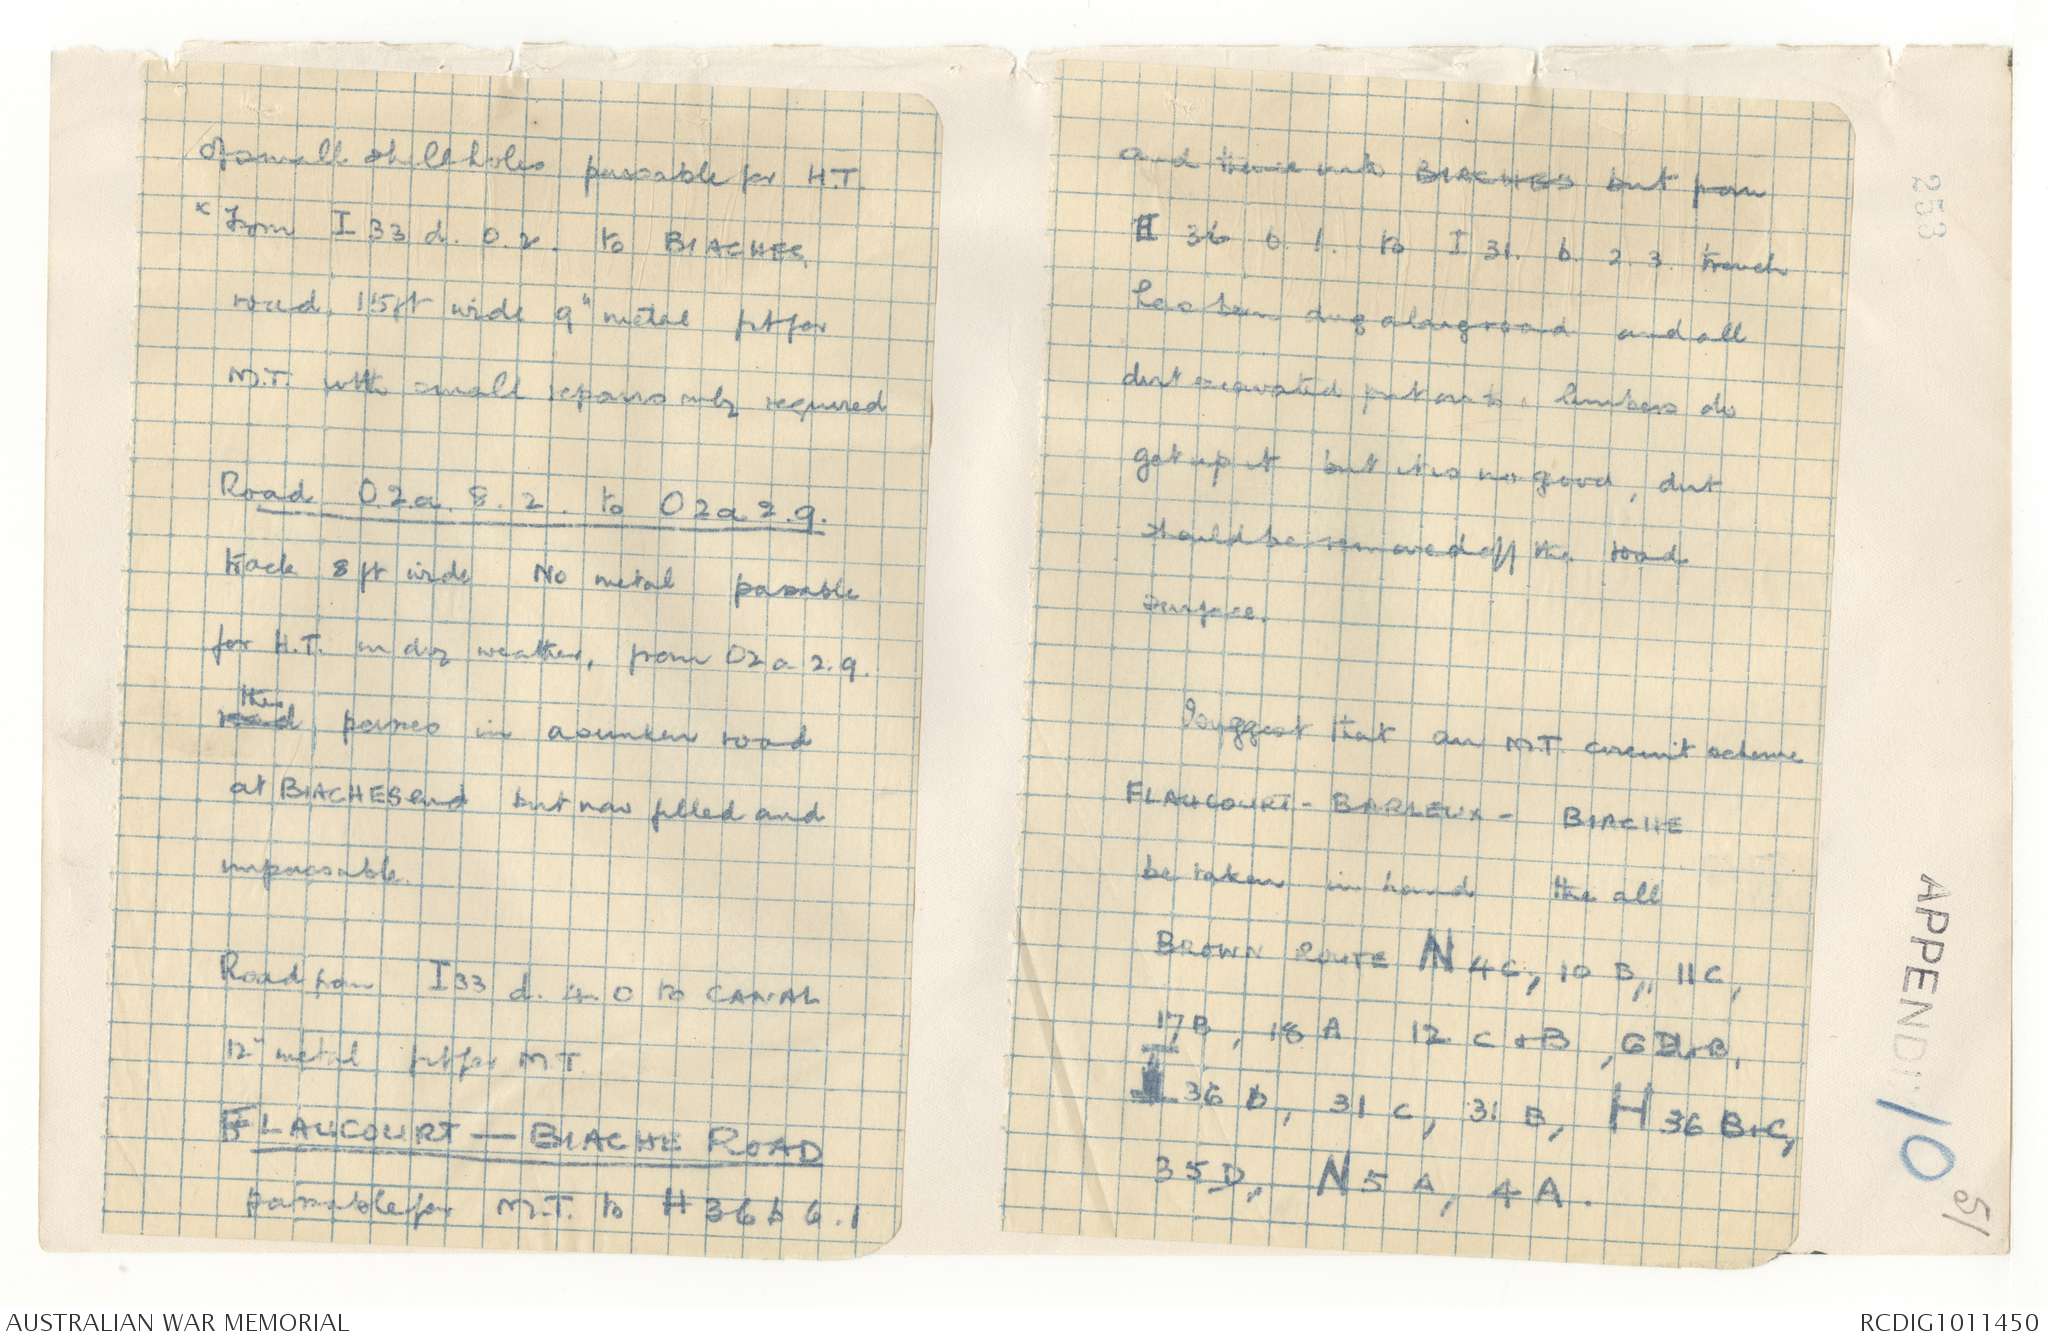 of small shell holes passable for H.T.
x from I 33 d. 0.2. to BIACHES
road, 15ft wide 9" metal fit for
M.T. with small repairs only required
Road O.2.a. 8.2. to O2a 2.9.
track 8 ft wide No metal passable
for H.T. in dry weather, from O2a 2.9.
the
road, passes in a sunken road
at BIACHES end but now filled and
impassable.
Road from I 33 d. 4.0 to CANAL
12" metal fit for M.T.
FLAUCOURT — BIACHE ROAD
passable for M.T. to H 36 b 6.1
and thence into BIACHES but from
H 36 b. 1. to I 31. b. 2.3. trench
has been dug along road and all
dirt excavated put on to. limbers do
get up it but it is no good, dirt
should be removed off the road
surface.
I suggest that an M.T. circuit scheme
FLAUCOURT - BARLEUX - BIACHE
be taken in hand the all
BROWN ROUTE N 4C, 10 B, 11C,
17B, 18A 12 C + B, 6 D + B,
I 36 b, 31 C, 31 B, H 36 B + C,
35D, N 5 A, 4A.
253
APPENDI 10
51
AUSTRALIAN WAR MEMORIAL
RCDIG1011450